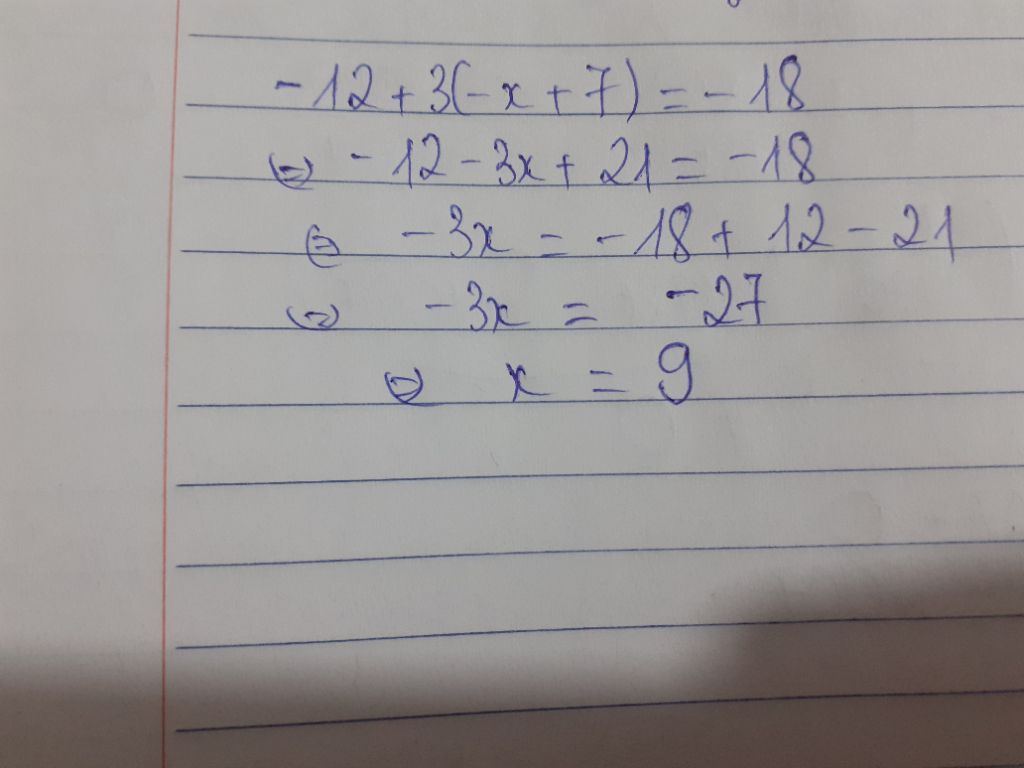 -12+3(-x+7)=-18
⇔ -12-3x+21=-18
⇔ -3x=-18+12-21
⇔ -3x=-27
⇔ x=9